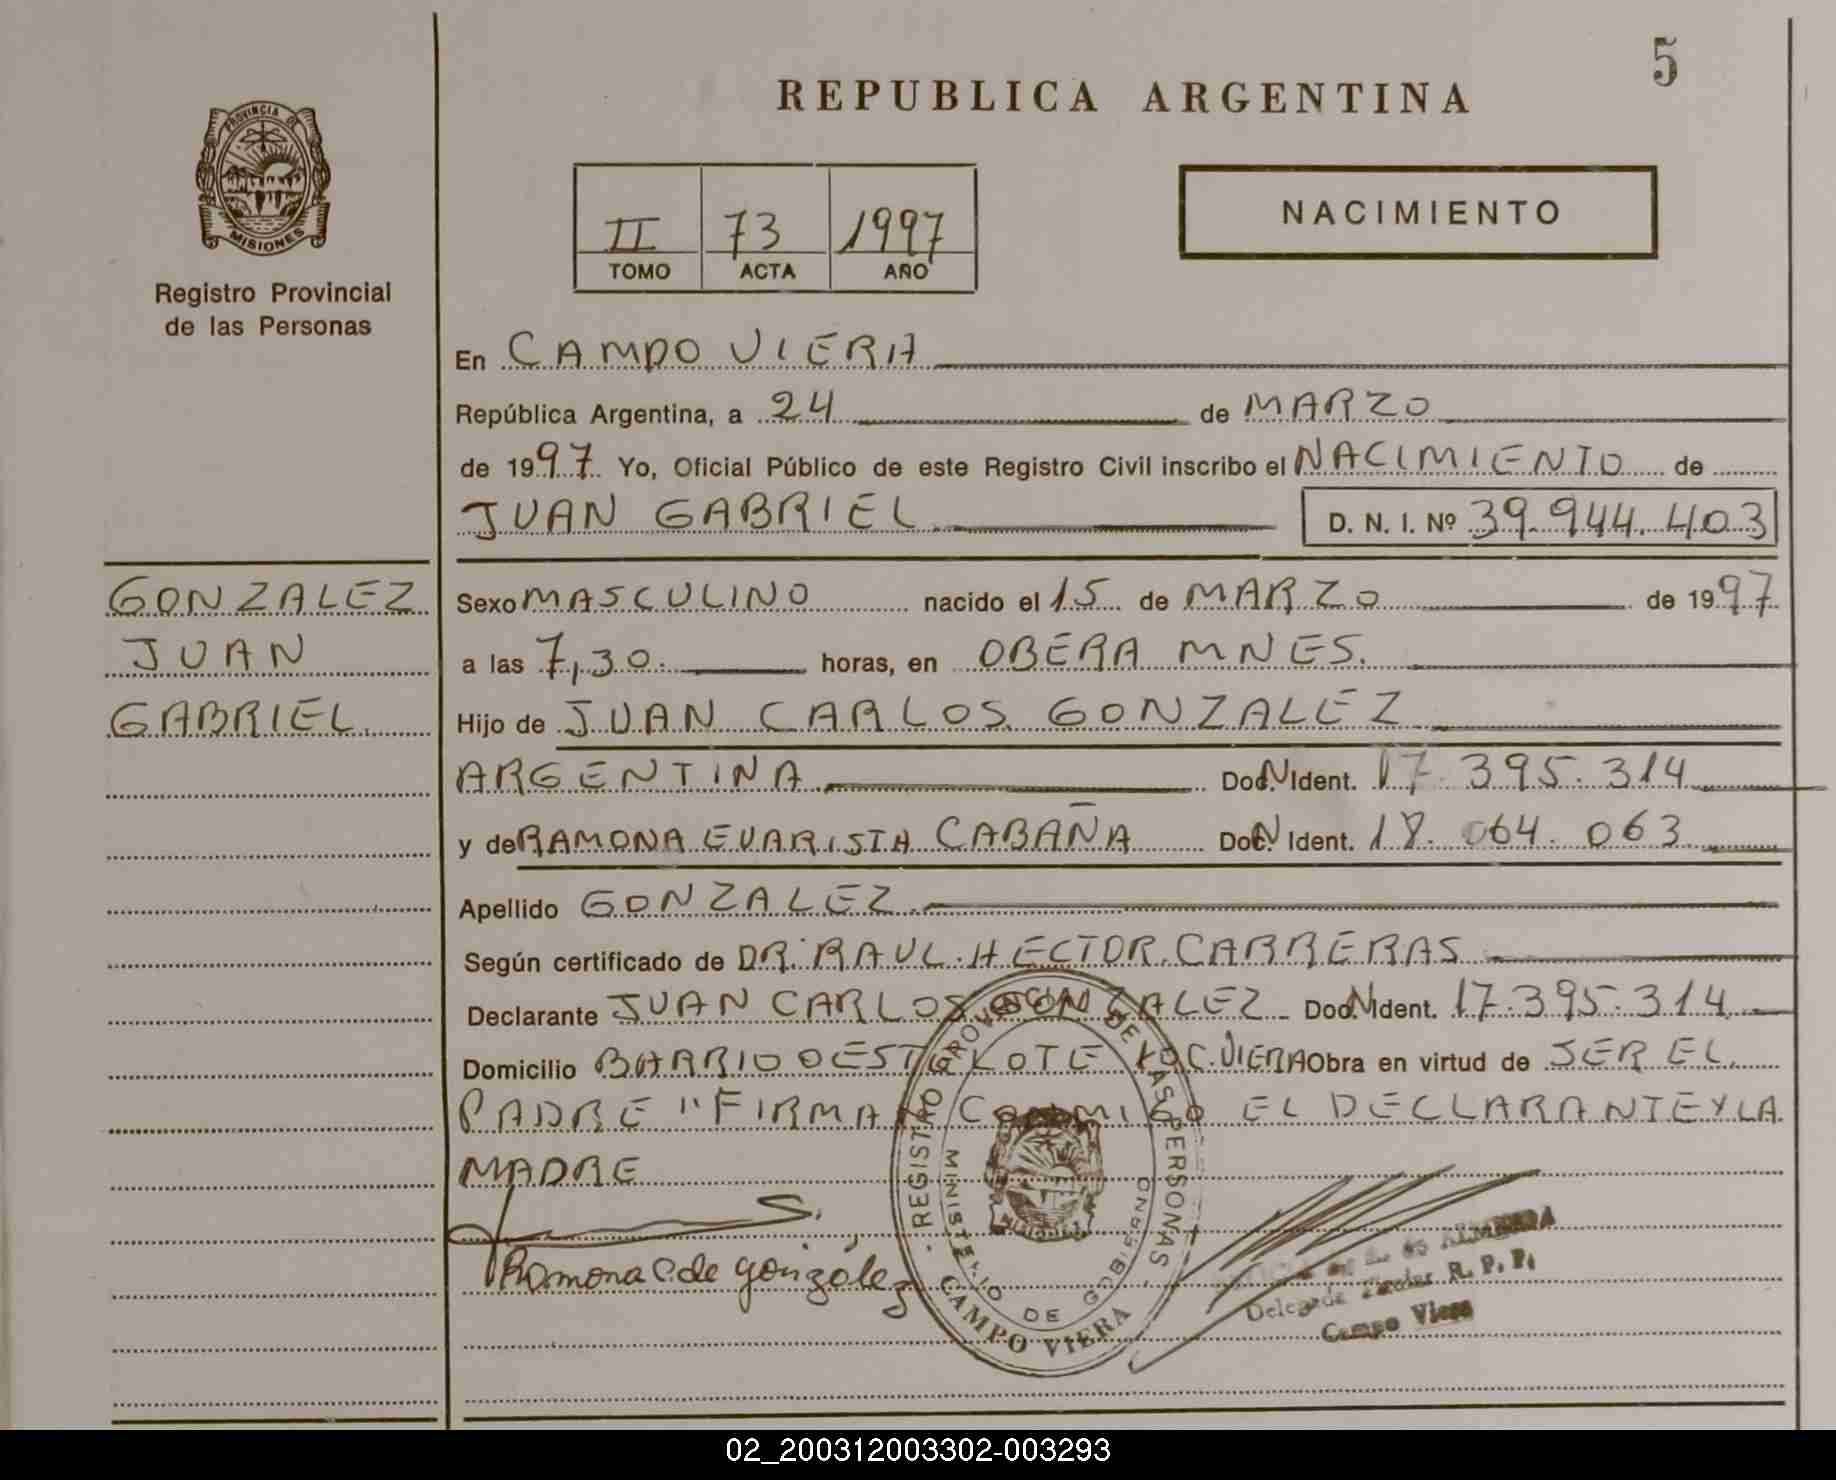 5
REPUBLICA ARGENTINA
PROVINCIA DE
MISIONES
Registro Provincial
de las Personas
II 73 1997
TOMO ACTA AÑO
NACIMIENTO
En CAMPO VIERA
República Argentina, a 24 de MARZO
de 1997 Yo, Oficial Público de este Registro Civil inscribo el NACIMIENTO de
JUAN GABRIEL D. N. I. Nº 39.944.403
GONZALEZ
JUAN
GABRIEL.
Sexo MASCULINO nacido el 15 de MARZO de 1997
a las 7,30. horas, en OBERA MNES.
Hijo de JUAN CARLOS GONZALEZ
ARGENTINA Doc. N Ident. 17.395.314
y de RAMONA EVARISTA CABAÑA Doc. N Ident. 18.064.063
Apellido GONZALEZ
Según certificado de DR. RAUL HECTOR CARRERAS
Declarante JUAN CARLOS GONZALEZ Doc. N Ident. 17.395.314
Domicilio BARRIO OESTE LOTE C. VIERA Obra en virtud de SER EL
PADRE "FIRMAN CONMIGO EL DECLARANTE Y LA
MADRE
Ramona C. de González
REGISTRO PROVINCIAL DE LAS PERSONAS
MINISTERIO DE GOBIERNO
CAMPO VIERA
ALMEIDA
Delegada Titular R. P. P.
Campo Viera
02_200312003302-003293